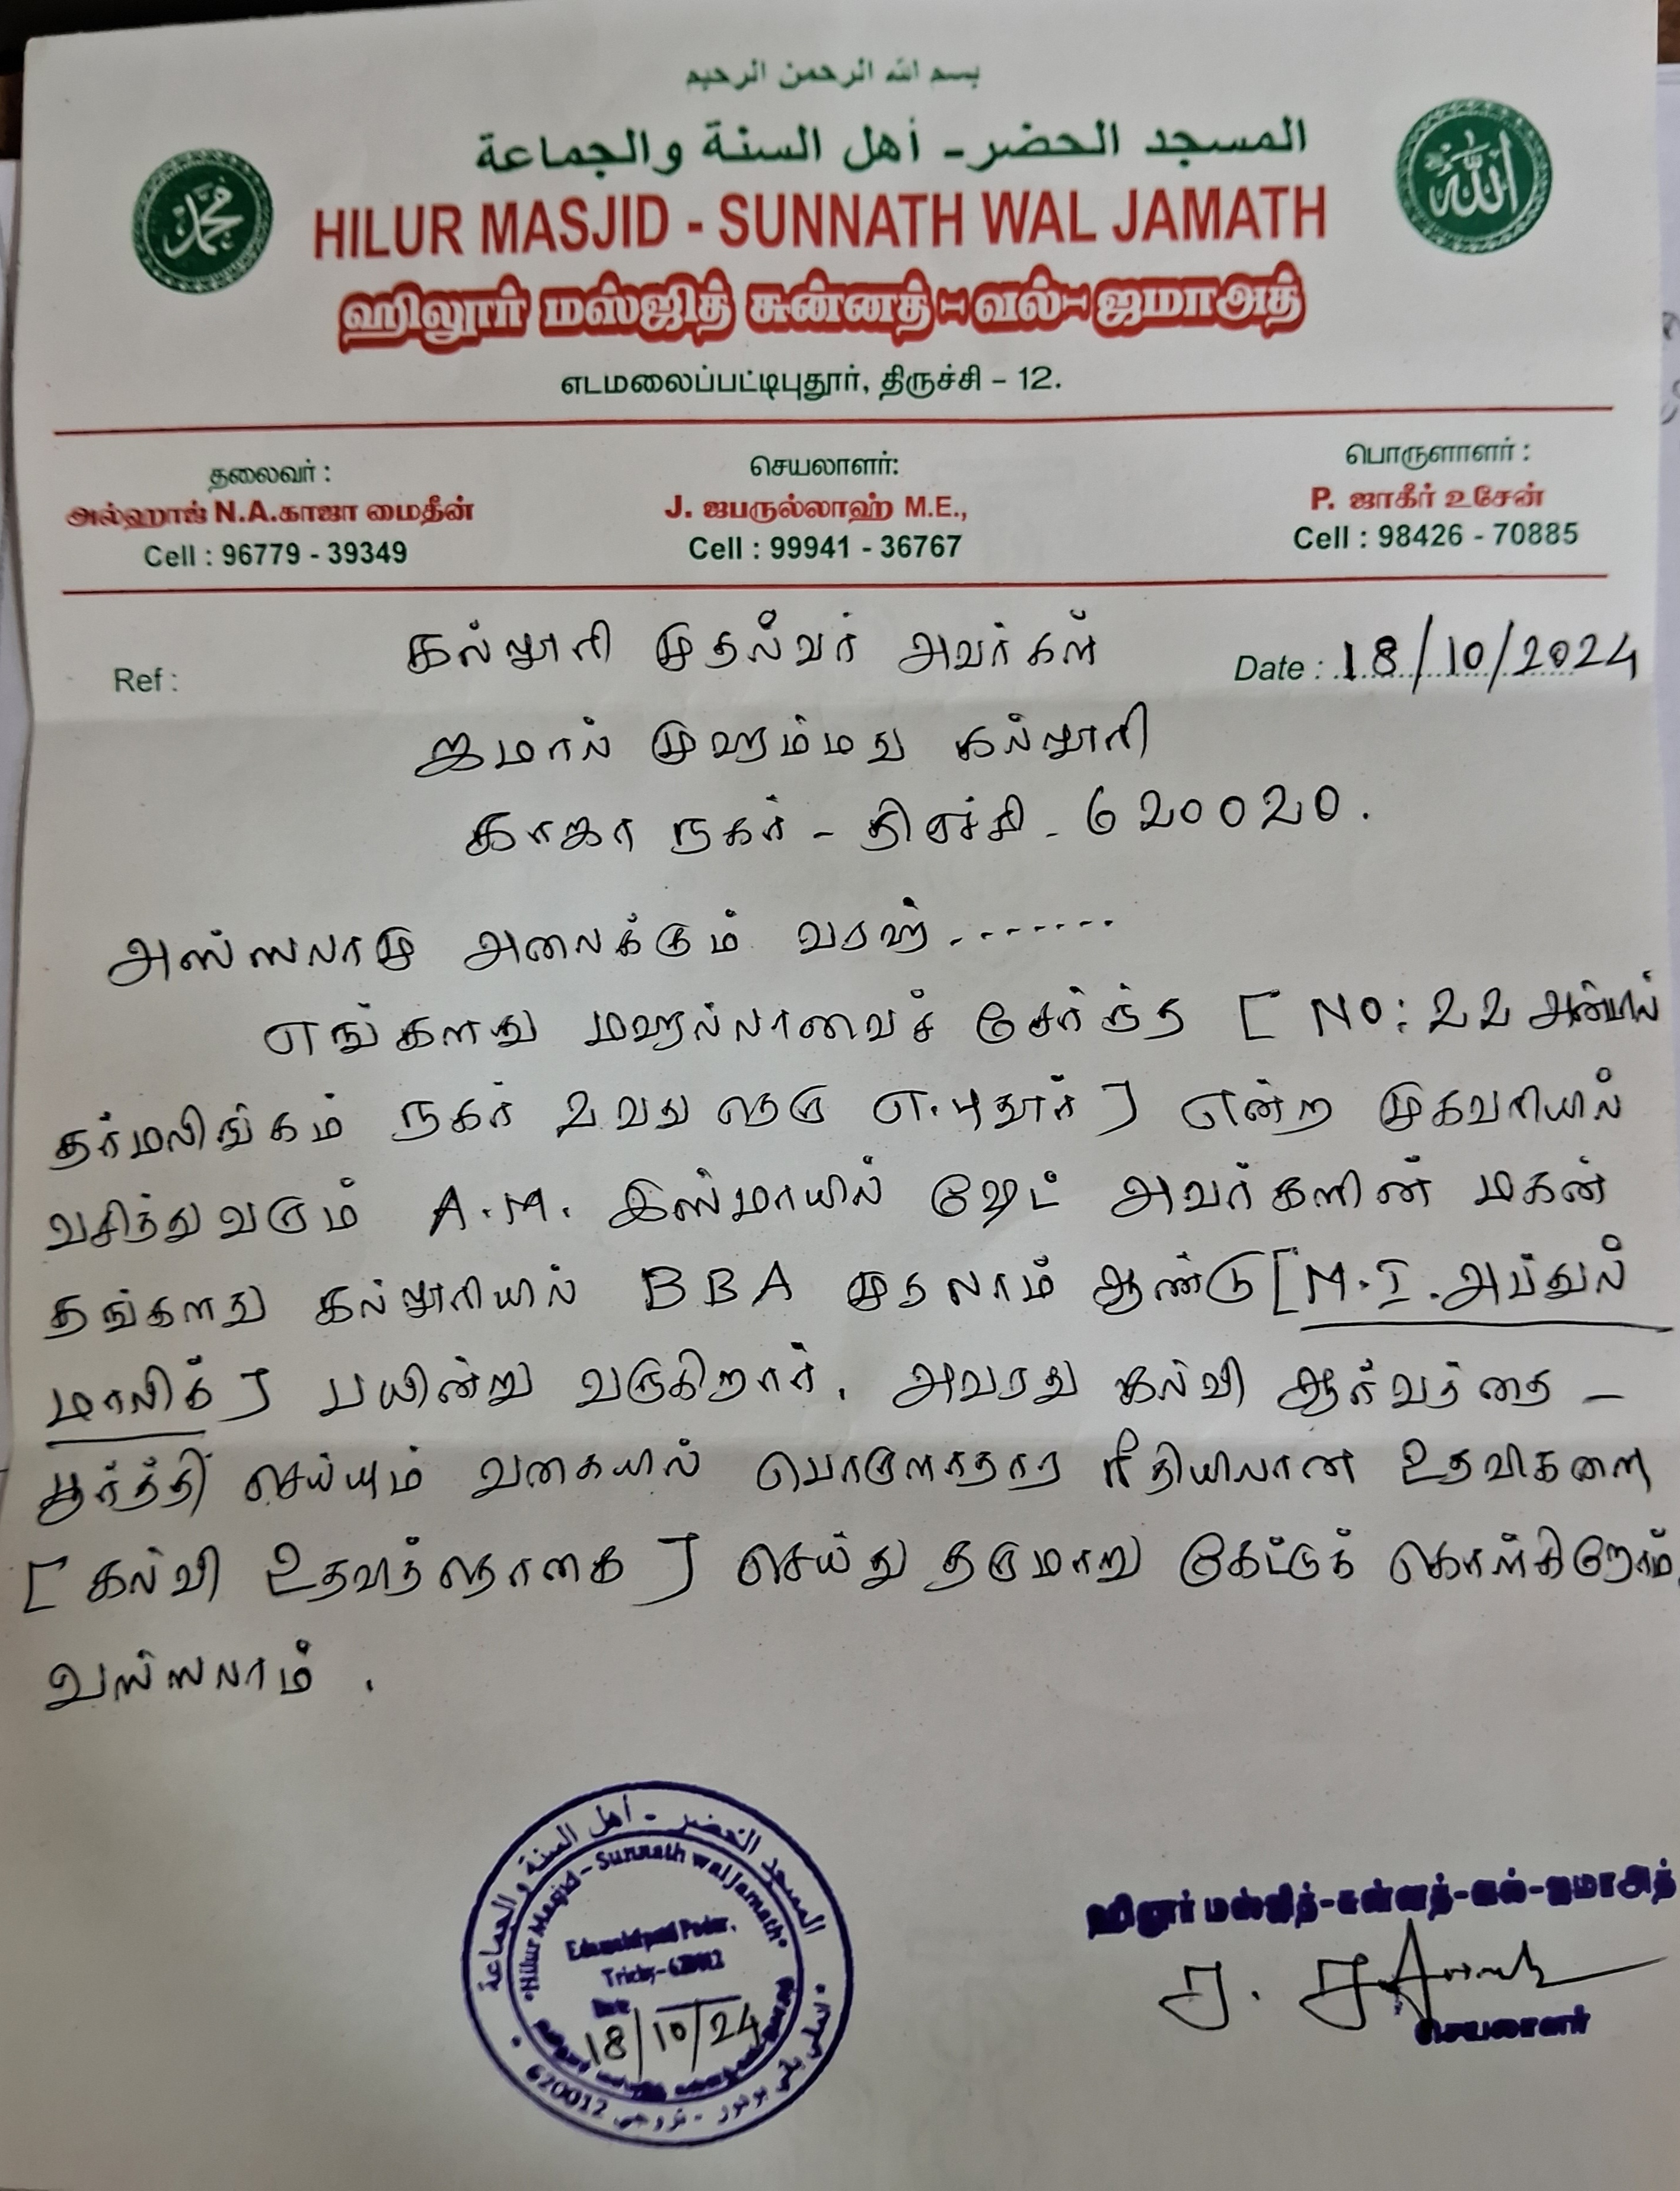 بسم الله الرحمن الرحيم
المسجد الحضر - أهل السنة والجماعة
HILUR MASJID - SUNNATH WAL JAMATH
ஹிலூர் மஸ்ஜித் சுன்னத் - வல் - ஜமாஅத்
எடமலைப்பட்டிபுதூர், திருச்சி - 12.
தலைவர் : செயலாளர்: பொருளாளர் :
அல்ஹாஜ் N.A.காஜா மைதீன் J. ஜபருல்லாஹ் M.E., P. ஜாகீர் உசேன்
Cell : 96779 - 39349 Cell : 99941 - 36767 Cell : 98426 - 70885
Ref : கல்லூரி முதல்வர் அவர்கள் Date : 18/10/2024
ஜமால் முஹம்மது கல்லூரி
காஜா நகர் - திருச்சி - 620020.
அஸ்ஸலாமு அலைக்கும் வரஹ் .......
எங்களது மஹல்லாவைச் சேர்ந்த [ NO: 22 அன்பில்
தர்மலிங்கம் நகர் 2 வது தெரு எ.புதூர் ] என்ற முகவரியில்
வசித்து வரும் A.M. இஸ்மாயில் ஷேட் அவர்களின் மகன்
தங்களது கல்லூரியில் BBA முதலாம் ஆண்டு [ M.I. அப்துல்
மாலிக் ] பயின்று வருகிறார். அவரது கல்வி ஆர்வத்தை -
பூர்த்தி செய்யும் வகையில் பொருளாதார ரீதியிலான உதவிகளை
[ கல்வி உதவித்தொகை ] செய்து தருமாறு கேட்டுக் கொள்கிறோம்.
வஸ்ஸலாம் .
المسجد الحضر - أهل السنة والجماعة
Hilur Masjid - Sunnath wal Jamath
Trichy - 620012
Date
18/10/24
620012
ஹிலூர் மஸ்ஜித்-சுன்னத்-வல்-ஜமாஅத்
செயலாளர்